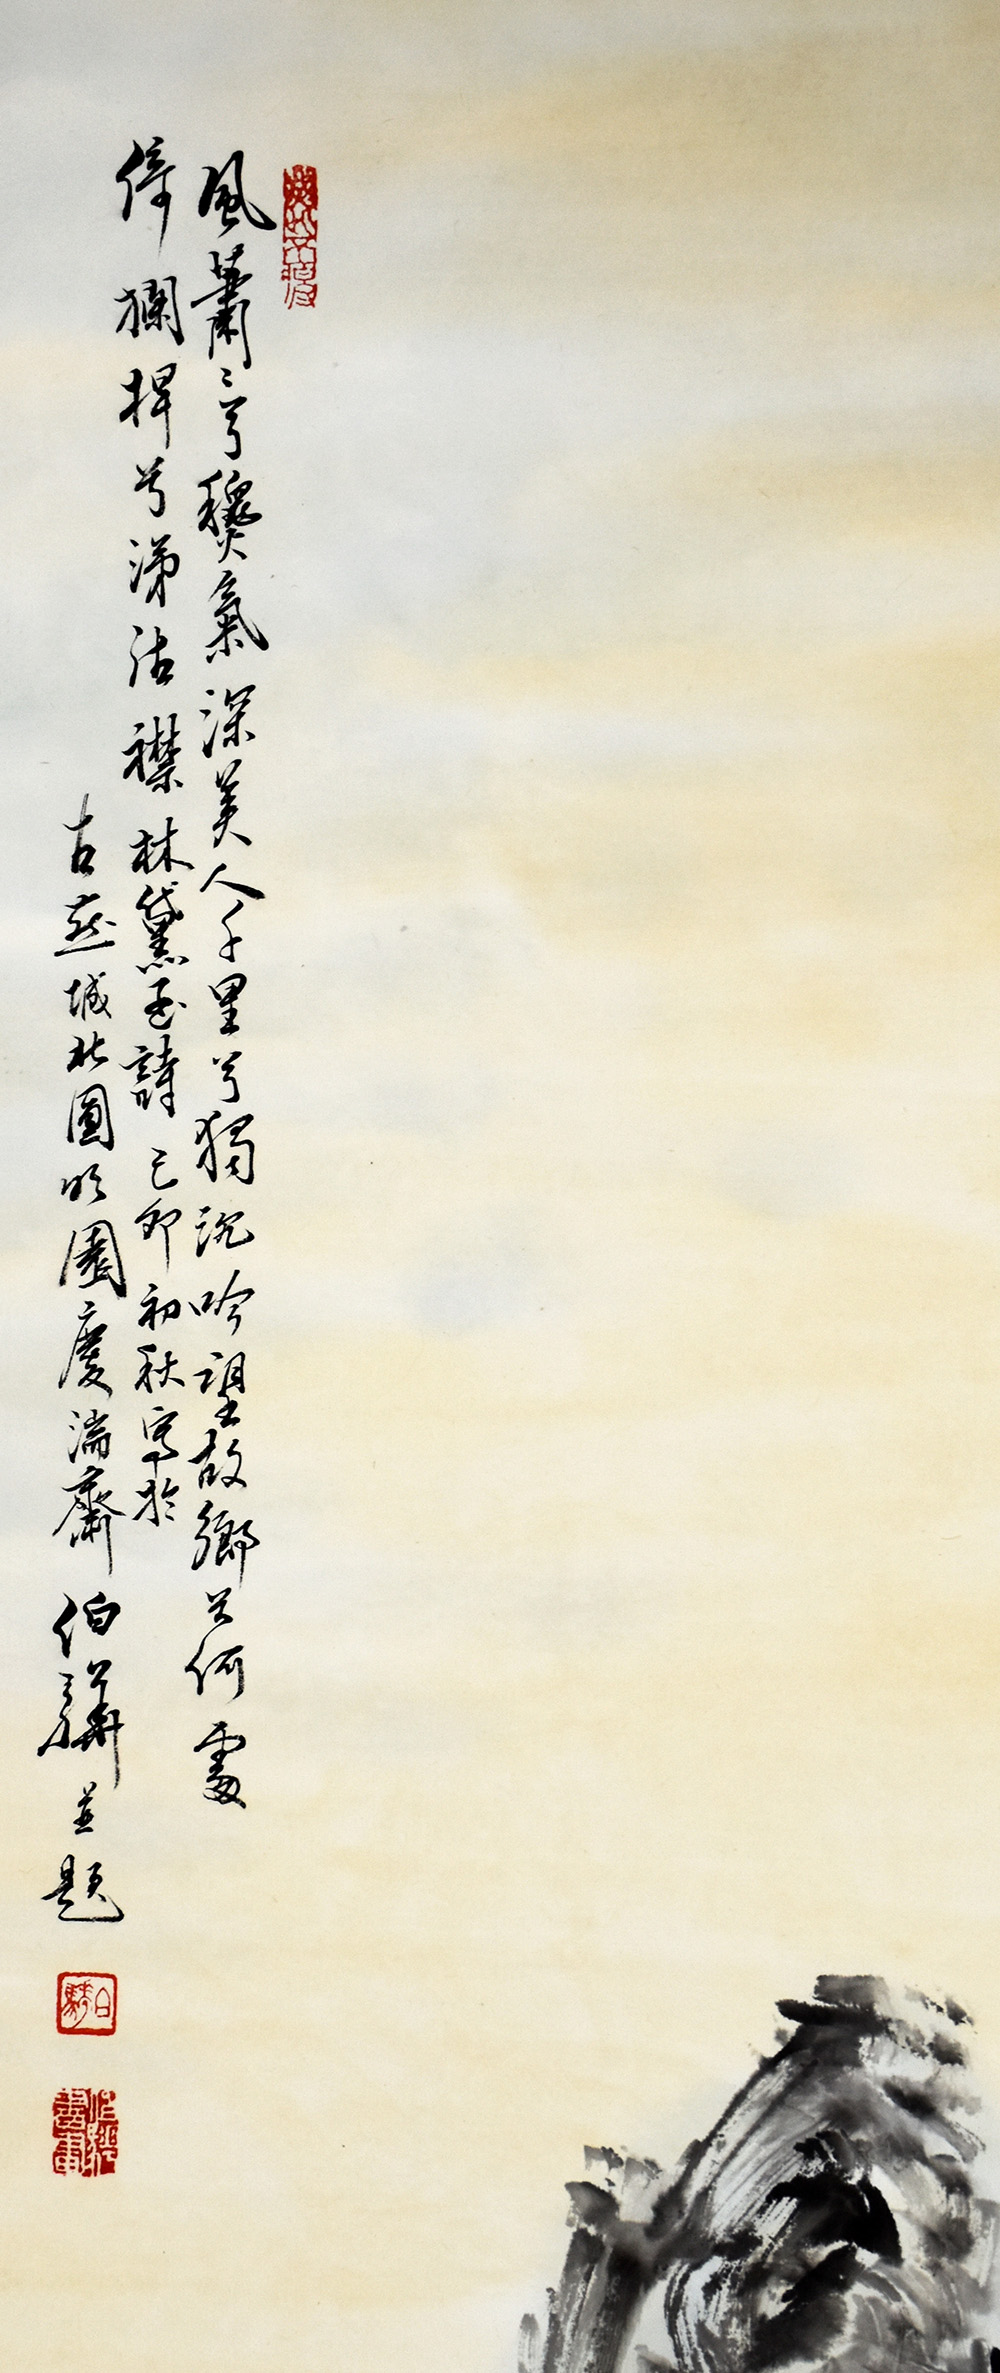 風蕭〻兮龝氣深美人千里兮獨沉吟望故鄉兮何處
倚欄桿兮涕沾襟林黛玉詩己卯初秋寫於
古燕城北圓明園慶湍齋伯驊並題